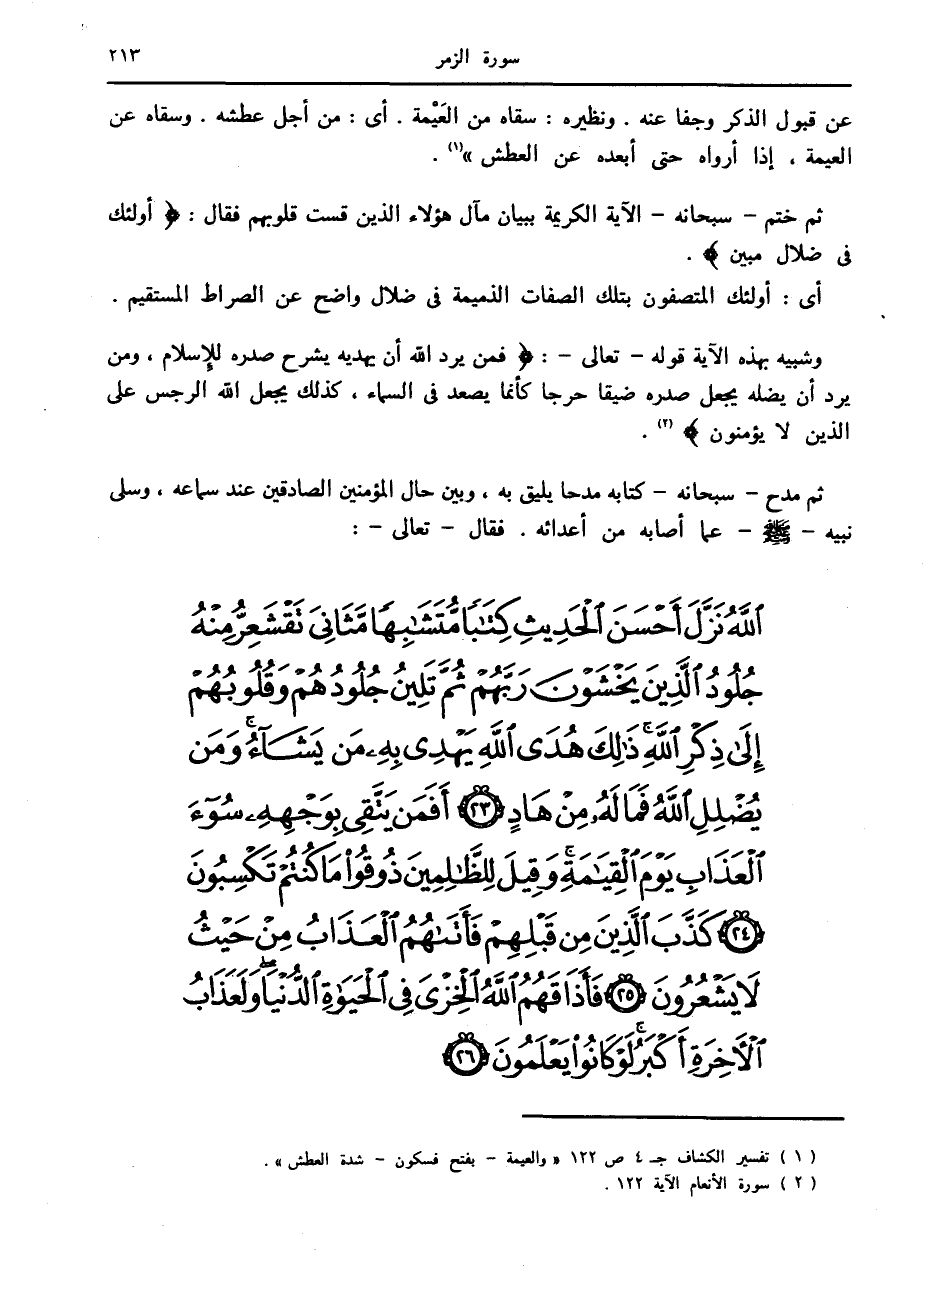 سورة الزمر ٢١٣
عن قبول الذكر وجفا عنه . ونظيره : سقاه من العَيْمة . أى : من أجل عطشه . وسقاه عن
العيمة ، إذا أرواه حتى أبعده عن العطش »(١) .
ثم ختم - سبحانه - الآية الكريمة ببيان مآل هؤلاء الذين قست قلوبهم فقال : ﴿ أولئك
فى ضلال مبين ﴾ .
أى : أولئك المتصفون بتلك الصفات الذميمة فى ضلال واضح عن الصراط المستقيم .
وشبيه بهذه الآية قوله - تعالى - : ﴿ فمن يرد الله أن يهديه يشرح صدره للإسلام ، ومن
يرد أن يضله يجعل صدره ضيقا حرجا كأنما يصعد فى السماء ، كذلك يجعل الله الرجس على
الذين لا يؤمنون ﴾ (٢) .
ثم مدح - سبحانه - كتابه مدحا يليق به ، وبين حال المؤمنين الصادقين عند سماعه ، وسلى
نبيه - ﷺ - عما أصابه من أعدائه . فقال - تعالى - :
ٱللَّهُ نَزَّلَ أَحْسَنَ ٱلْحَدِيثِ كِتَٰبًا مُّتَشَٰبِهًا مَّثَانِىَ تَقْشَعِرُّ مِنْهُ
جُلُودُ ٱلَّذِينَ يَخْشَوْنَ رَبَّهُمْ ثُمَّ تَلِينُ جُلُودُهُمْ وَقُلُوبُهُمْ
إِلَىٰ ذِكْرِ ٱللَّهِ ۚ ذَٰلِكَ هُدَى ٱللَّهِ يَهْدِى بِهِۦ مَن يَشَآءُ ۚ وَمَن
يُضْلِلِ ٱللَّهُ فَمَا لَهُۥ مِنْ هَادٍ ٢٣ أَفَمَن يَتَّقِى بِوَجْهِهِۦ سُوٓءَ
ٱلْعَذَابِ يَوْمَ ٱلْقِيَٰمَةِ ۚ وَقِيلَ لِلظَّٰلِمِينَ ذُوقُوا۟ مَا كُنتُمْ تَكْسِبُونَ
٢٤ كَذَّبَ ٱلَّذِينَ مِن قَبْلِهِمْ فَأَتَىٰهُمُ ٱلْعَذَابُ مِنْ حَيْثُ
لَا يَشْعُرُونَ ٢٥ فَأَذَاقَهُمُ ٱللَّهُ ٱلْخِزْىَ فِى ٱلْحَيَوٰةِ ٱلدُّنْيَا ۖ وَلَعَذَابُ
ٱلْءَاخِرَةِ أَكْبَرُ ۚ لَوْ كَانُوا۟ يَعْلَمُونَ ٢٦
( ١ ) تفسير الكشاف جـ ٤ ص ١٢٢ « والعيمة - بفتح فسكون - شدة العطش » .
( ٢ ) سورة الأنعام الآية ١٢٢ .